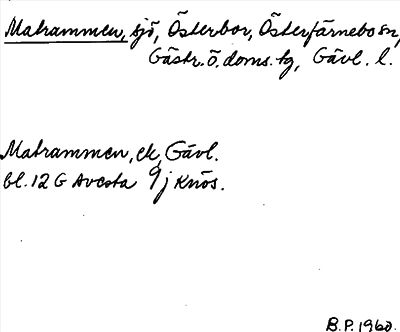 Matrammen, sjö, Österbor, Österfärnebo sn,
Gästr. ö. doms. tg, Gävl. l.
Matrammen, ek, Gävl.
bl. 12 G Avesta 9j Knös.
B.P. 1960.